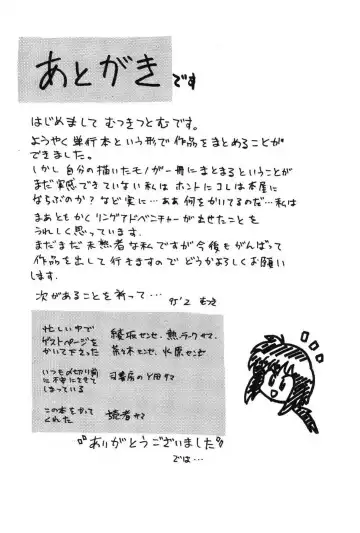 あとがき です
はじめまして むつきつとむです。
ようやく単行本という形で作品をまとめることが
できました。
しかし自分の描いたモノが一冊にまとまるということが
まだ実感できていない私は ホントにコレは本屋に
ならぶのか? など実に…あぁ何をかいてるのだ…私は
まぁともかくリングアドベンチャーが出せたことを
うれしく思っています。
まだまだ未熟者な私ですが今後もがんばって
作品を出して行きますので どうかよろしくお願い
します.
次があることを祈って… むつき
忙しい中で
ゲストページを
かいて下さった
綾坂センセ、熱ラークサマ、
茶々木センセ、水原センセ
いつも〆切り前
に
しまっている
司書房のY田サマ
この本をかって
くれた
読者サマ
『ありがとうございました』
では…